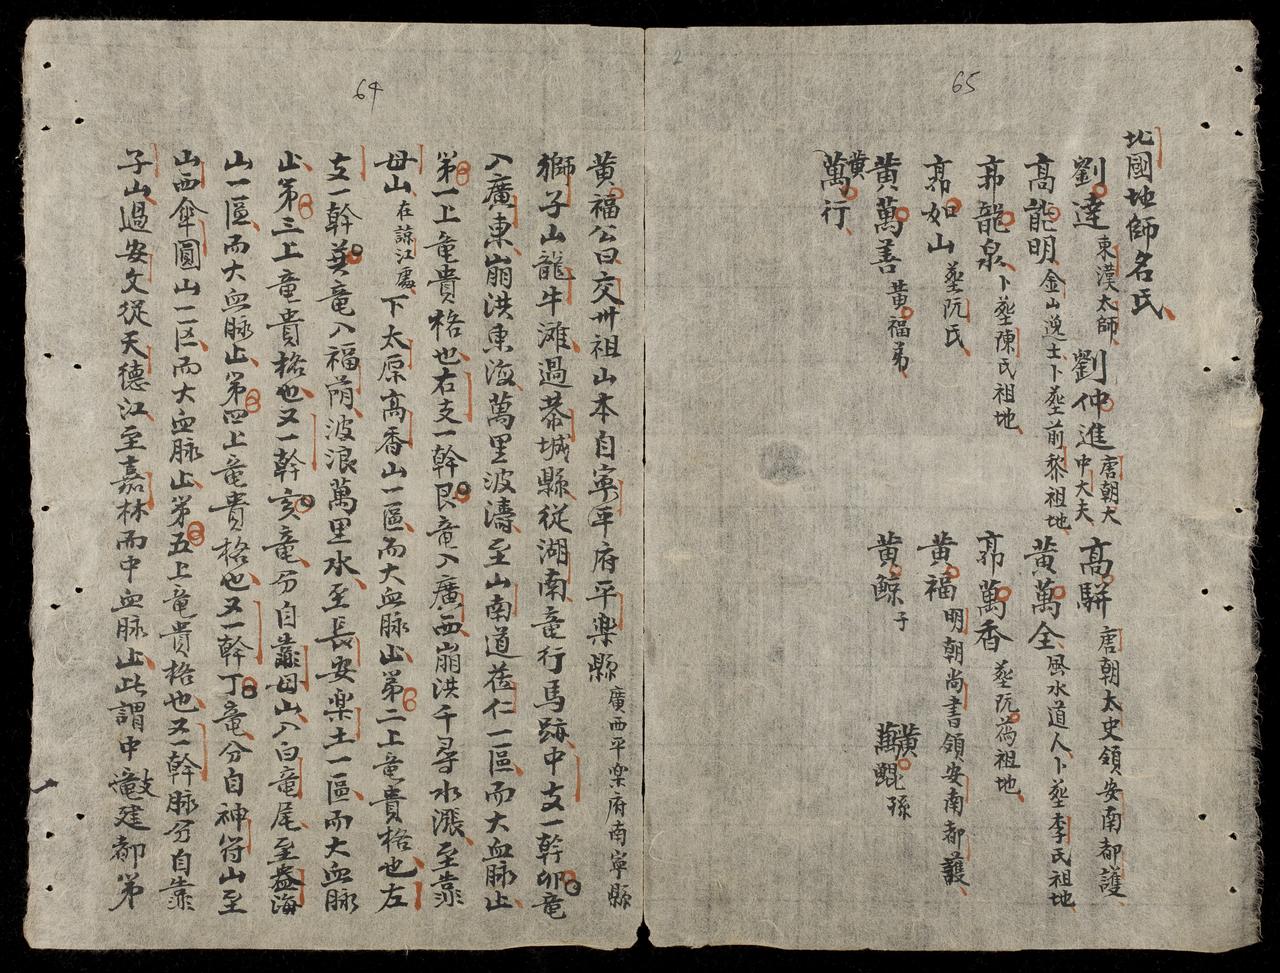 65
北國地師名氏
劉達 東漢太師 劉仲進 唐朝大中大夫 高駢 唐朝太史領安南都護
高龍明 金山逸士卜葬前黎祖地 黃萬全 風水道人卜葬李氏祖地
郭龍泉 卜葬陳氏祖地 郭萬香 葬阮薦祖地
郭如山 葬阮氏 黃福 明朝尚書領安南都護
黃萬善 黃福弟 黃鯨 子 黃萬鯤 孫
黃萬行
64
黃福公曰交州祖山本自寧平府平樂縣 廣西平樂府南寧縣
獅子山龍牛灘過恭城縣從湖南竜行馬跡中支一幹卯竜
入廣東崩洪東海萬里波濤至山南道莅仁一區而大血脉止
第一上竜貴格也右支一幹艮竜入廣西崩洪千尋水漲至靠
母山 在諒江處 下太原高香山一區而大血脉止第二上竜貴格也左
支一幹巽竜入福萠波浪萬里水至長安楽土一區而大血脉
止第三上竜貴格也又一幹亥竜分自靠母山入白竜尾至益海
山一區而大血脉止第四上竜貴格也又一幹丁竜分自神符山至
山西傘圓山一区而大血脉止第五上竜貴格也又一幹脉分自靠
子山過安文從天德江至嘉林而中血脉止此謂中支竜建都第